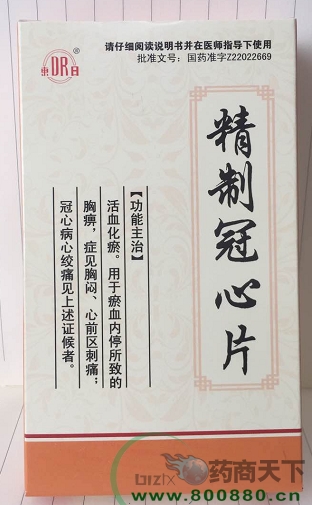 東DR日®
请仔细阅读说明书并在医师指导下使用
批准文号：国药准字Z22022669
精制冠心片
【功能主治】
活血化瘀。用于瘀血内停所致的
胸痹，症见胸闷、心前区刺痛；
冠心病心绞痛见上述证候者。
bizix
药商天下
www.800880.cn